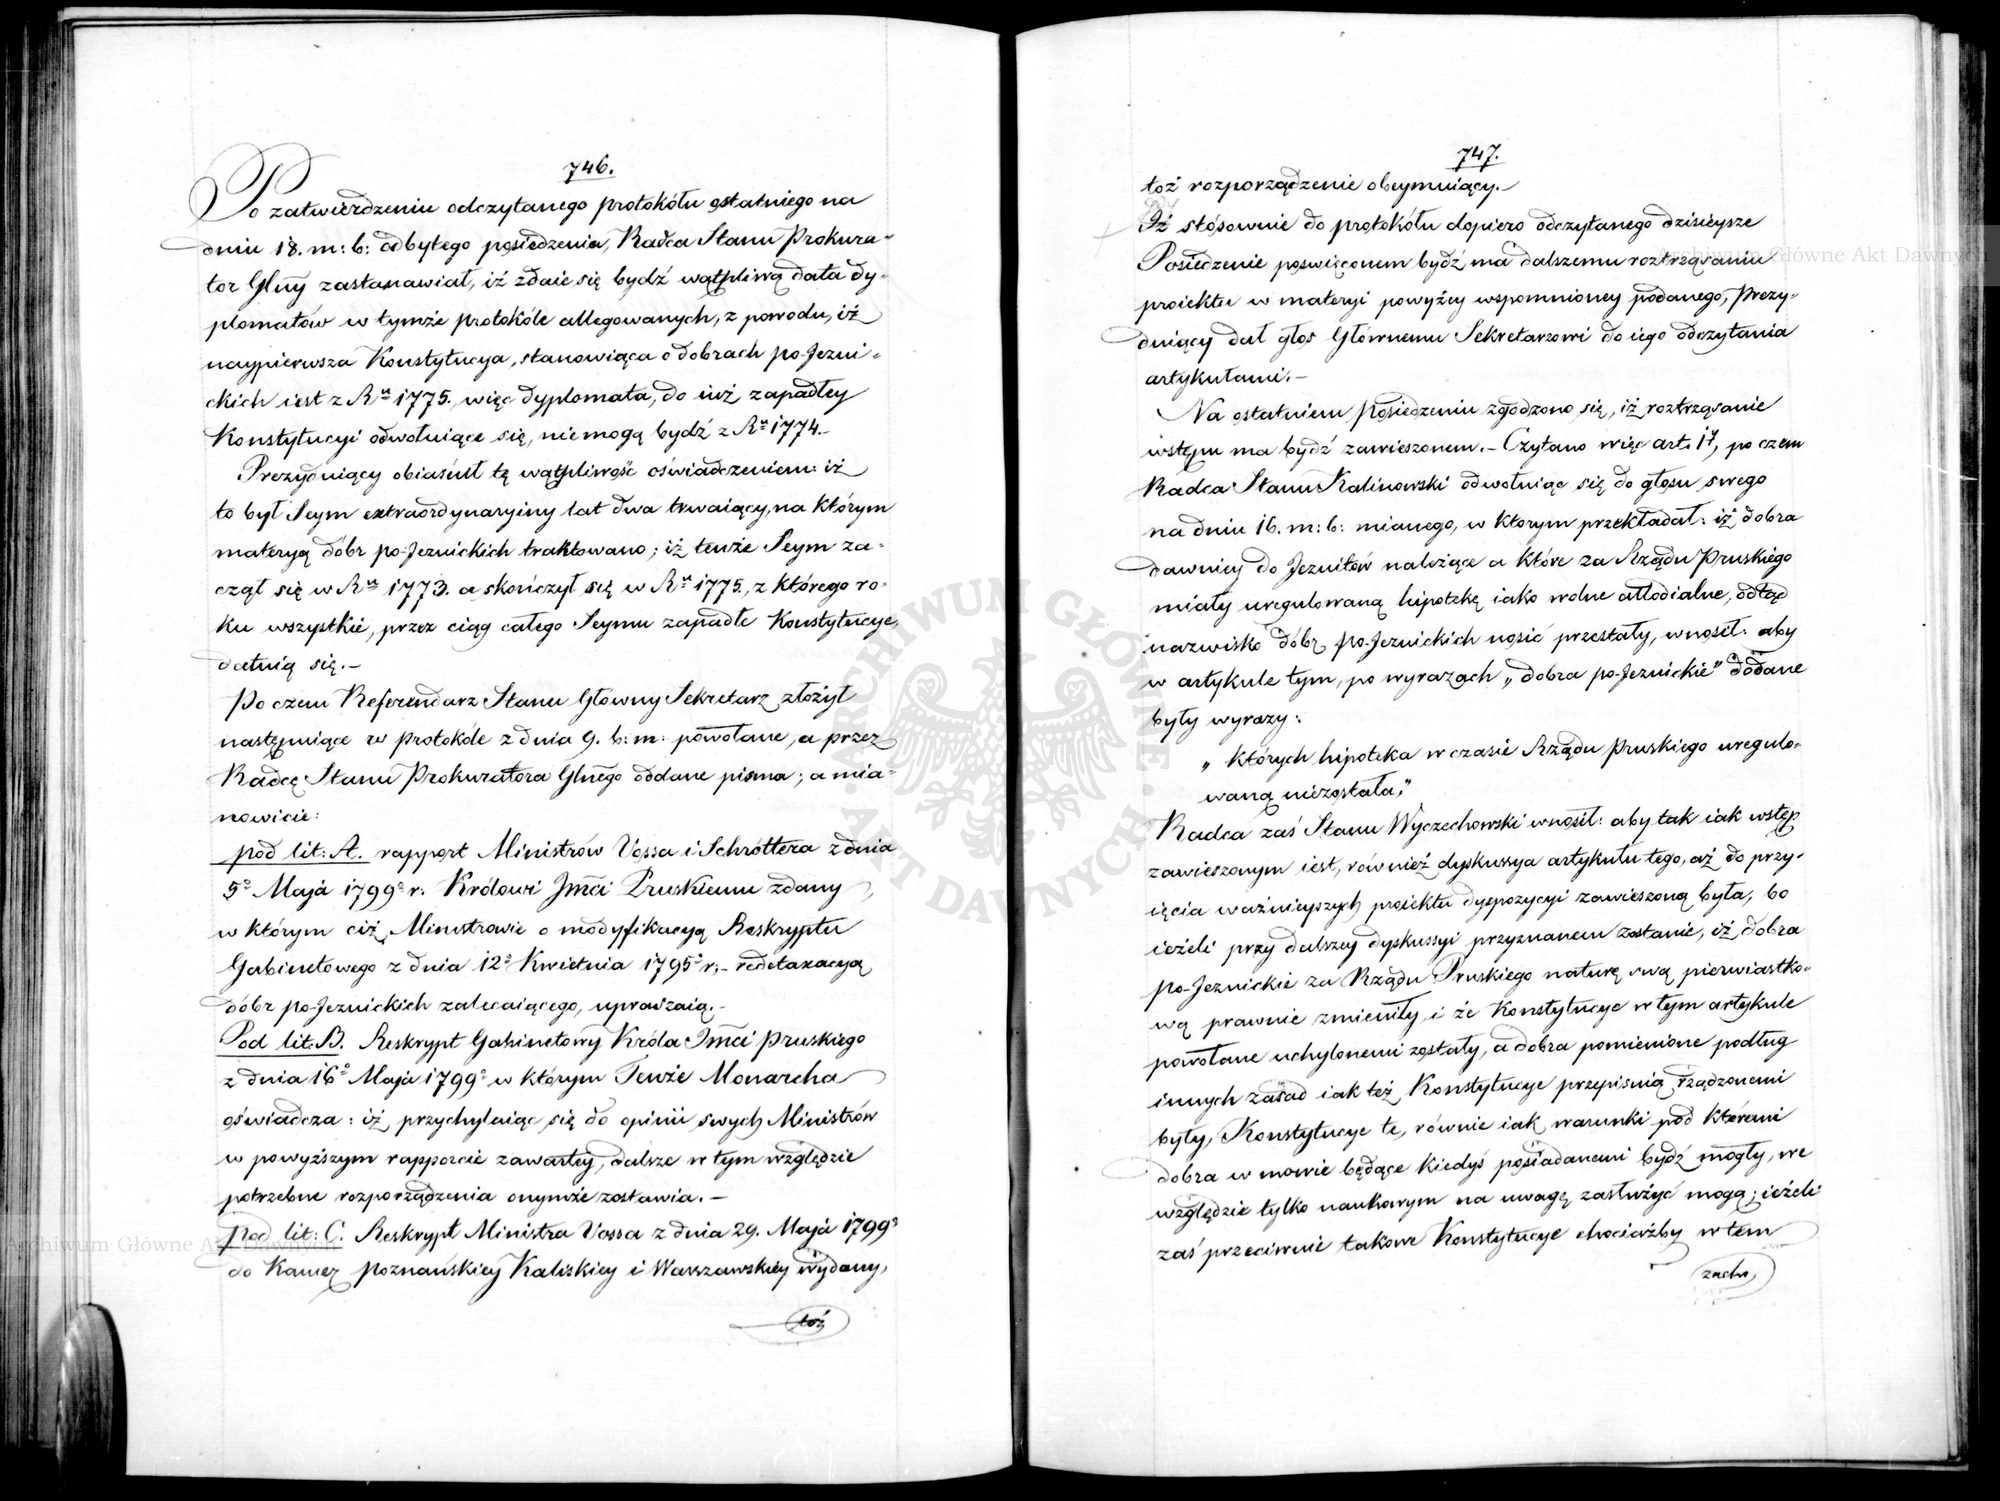 746.
Po zatwierdzeniu odczytanego protokółu ostatniego na
dniu 18. m: b: odbytego posiedzenia, Radca Stanu Prokura-
tor Glny zastanawiał, iż zdaie się bydź wątpliwą data dy-
plomatów w tymże protokóle allegowanych, z powodu, iż
naypierwsza Konstytucya, stanowiąca o dobrach po-Jezui-
ckich iest z Ru 1775. więc dyplomata, do iuż zapadłey
Konstytucyi odwołuiące się, niemogą bydź z Ru 1774.-
Prezyduiący obiaśnił tę wątpliwość oświadczeniem: iż
to był Seym extraordynaryiny lat dwa trwaiący, na którym
materyą dóbr po-Jezuickich traktowano; iż tenże Seym za-
czął się w Ru 1773. a skończył się w Ru 1775., z którego ro-
ku wszystkie, przez ciąg całego Seymu zapadłe Konstytucye,
datuią się.-
Po czem Referendarz Stanu Główny Sekretarz złożył
następuiące w protokóle z dnia 9. b: m: powołane, a przez
Radcę Stanu Prokuratora Glnego oddane pisma; a mia-
nowicie:
pod lit: A. rapport Ministrów Vossa i Schröttera z dnia
5o Maja 1799o r: Królowi Jmci Pruskiemu zdany,
w którym ciż Ministrowie o modyfikacyą Reskryptu
Gabinetowego z dnia 12o Kwietnia 1795o r:- redetaxacyą
dóbr po-Jezuickich zalecaiącego, upraszaią.-
Pod lit: B. Reskrypt Gabinetowy Króla Jmci Pruskiego
z dnia 16o Maja 1799o w którym Tenże Monarcha
oświadcza: iż, przychylaiąc się do opinii swych Ministrów
w powyższym rapporcie zawartey, dalsze w tym względzie
potrzebne rozporządzenia onymże zostawia.-
Pod lit: C. Reskrypt Ministra Vossa z dnia 29. Maja 1799o
do Kamer Poznańskiey Kaliskiey i Warszawskiey wydany,
toż
747.
toż rozporządzenie obeymuiący.-
Iż stósownie do protokółu dopiero odczytanego dzisieysze
Posiedzenie poswięconem bydź ma dalszemu roztrząsaniu
proiektu w materyi powyżey wspomnioney podanego, Prezy-
duiący dał głos Głównemu Sekretarzowi do iego odczytania
artykułami.-
Na ostatniem posiedzeniu zgodzono się, iż roztrząsanie
wstępu ma bydź zawieszonem.- Czytano więc art. 1y, po czem
Radca Stanu Kalinowski odwołuiąc się do głosu swego
na dniu 16. m: b: mianego, w ktorym przekładał: iż dobra
dawniey do Jezuitów należące a które za Rządu Pruskiego
miały uregulowaną hipotekę iako wolne allodialne, odtąd
nazwisko dóbr po-Jezuickich nosić przestały, wnosił: aby
w artykule tym, po wyrazach „dobra po-Jezuickie” dodane
były wyrazy:
„których hipoteka w czasie Rządu Pruskiego uregulo-
waną niezostała,”
Radca zaś Stanu Wyczechowski wnosił: aby tak iak wstęp
zawieszonym iest, również dyskussya artykułu tego, aż do przy-
ięcia ważnieyszych proiektu dyspozycyi zawieszoną była, bo
ieżeli przy dalszey dyskussyi przyznanem zostanie, iż dobra
po-Jezuickie za Rządu Pruskiego naturę swą pierwiastko-
wą prawnie zmieniły, i że Konstytucye w tym artykule
powołane uchylonemi zostały, a dobra pomienione podług
innych zasad iak też Konstytucye przepisuią rządzonemi
były, Konstytucye te, równie iak warunki pod któremi
dobra w mowie będące kiedyś posiadanemi bydź mogły, we
względzie tylko naukowym na uwagę zasłużyć mogą; ieżeli
zaś przeciwnie takowe Konstytucye chociażby w tem
zacho,
ARCHIWUM GŁÓWNE AKT DAWNYCH
Archiwum Główne Akt Dawnych
Archiwum Główne Akt Dawnych